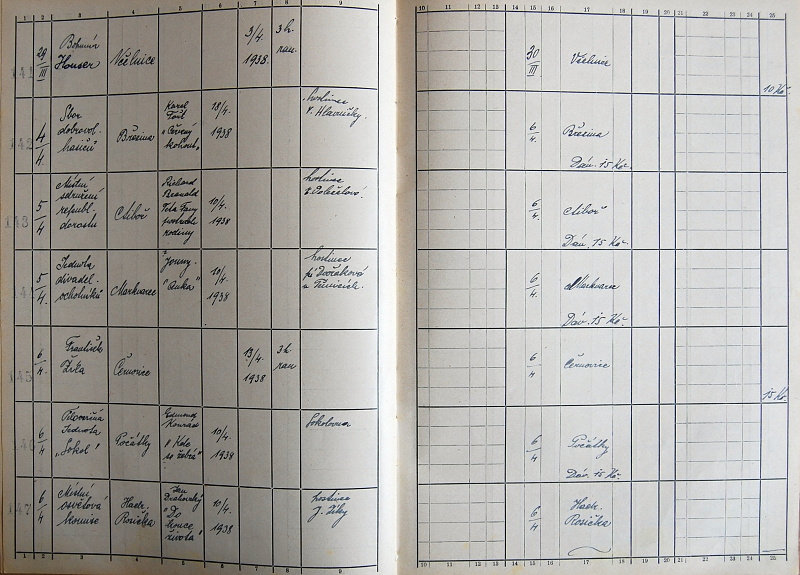 1 2 3 4 5 6 7 8 9
10 11 12 13 14 15 16 17 18 19 20 21 22 23 24 25
141
29/III
Bohumír
Houser
Včelnice
3/4.
1938.
3 h.
ran.
30/III
Včelnice
10 Kč.
142
4/4.
Sbor
dobrovol.
hasičů
Březina
Karel
Fořt
"Červený
kohout"
18/4.
1938
hostinec
Hlavničky.
6/4
Březina
Dáv. 15 Kč.
143
5/4
Místní
sdružení
republ.
dorostu
Ctiboř
Richard
Branald
Teta Fany
postrach
rodiny
10/4.
1938
hostinec
6/4.
Ctiboř
Dáv. 15 Kč.
5/4.
Jednota
divadel.
ochotníků
Markvarec
10/4
1938
hostinec
Dvořákové
6/4.
Markvarec
Dáv. 15 Kč.
145
6/4
František
Žižka
Černovice
13/4.
1938
3 h.
ran
6/4
Černovice
15 Kč.
146
6/4
Tělocvičná
Jednota
"Sokol"
Počátky
Edmond
Konrád
"Kde
se žebrá"
10/4.
1938
Sokolovna
6/4
Počátky
Dáv. 15 Kč.
147
6/4
Místní
osvětová
komise
Hach.
Rosička
Jan
Drahovský
"Do
konce
života"
10/4
1938
hostinec
J. Žiky
6/4
Hach.
Rosička
1 2 3 4 5 6 7 8 9
10 11 12 13 14 15 16 17 18 19 20 21 22 23 24 25